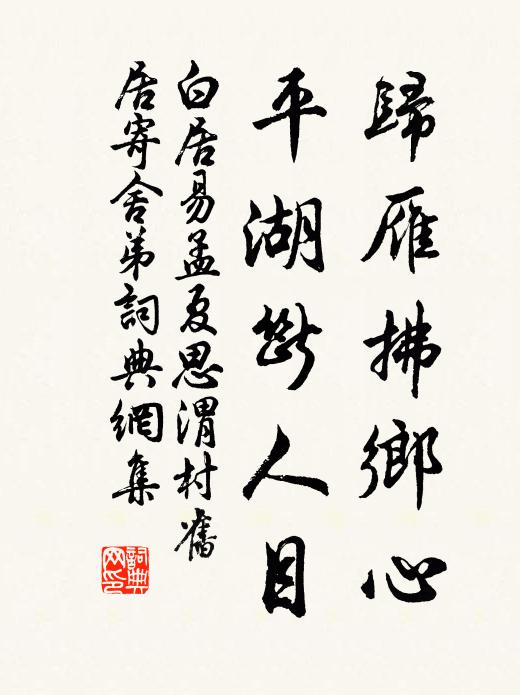 歸雁拂鄉心
平湖斷人目
白居易孟夏思渭村舊
居寄舍弟詞典網集
詞典
网印